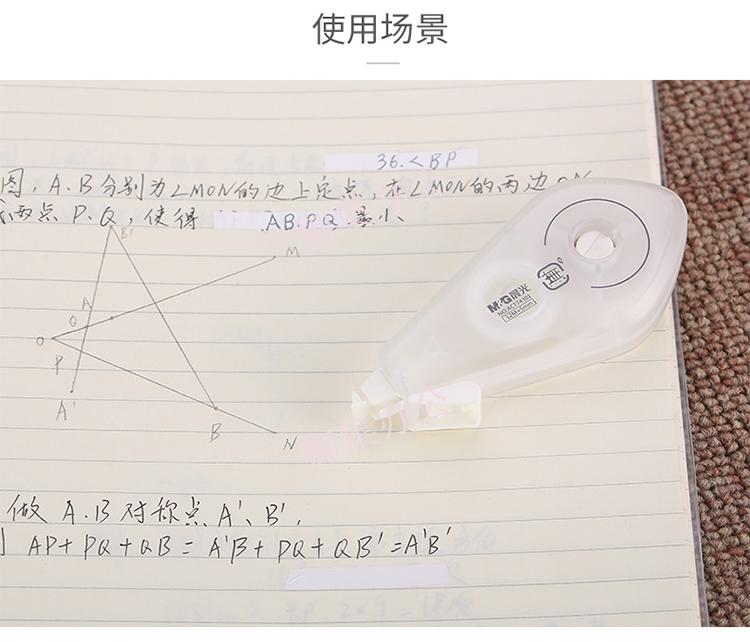 使用场景
36.<BP
图,A.B分别为∠MON的边上定点,在∠MON的两边
两点P.Q,使得 AB.PQ.最小
B'
M
A
Q
O
P
A'
B
N
M&G晨光
NO.ACT74301
12M×5mm
做A.B对称点A'、B',
AP+PQ+QB=A'B+PQ+QB'=A'B'